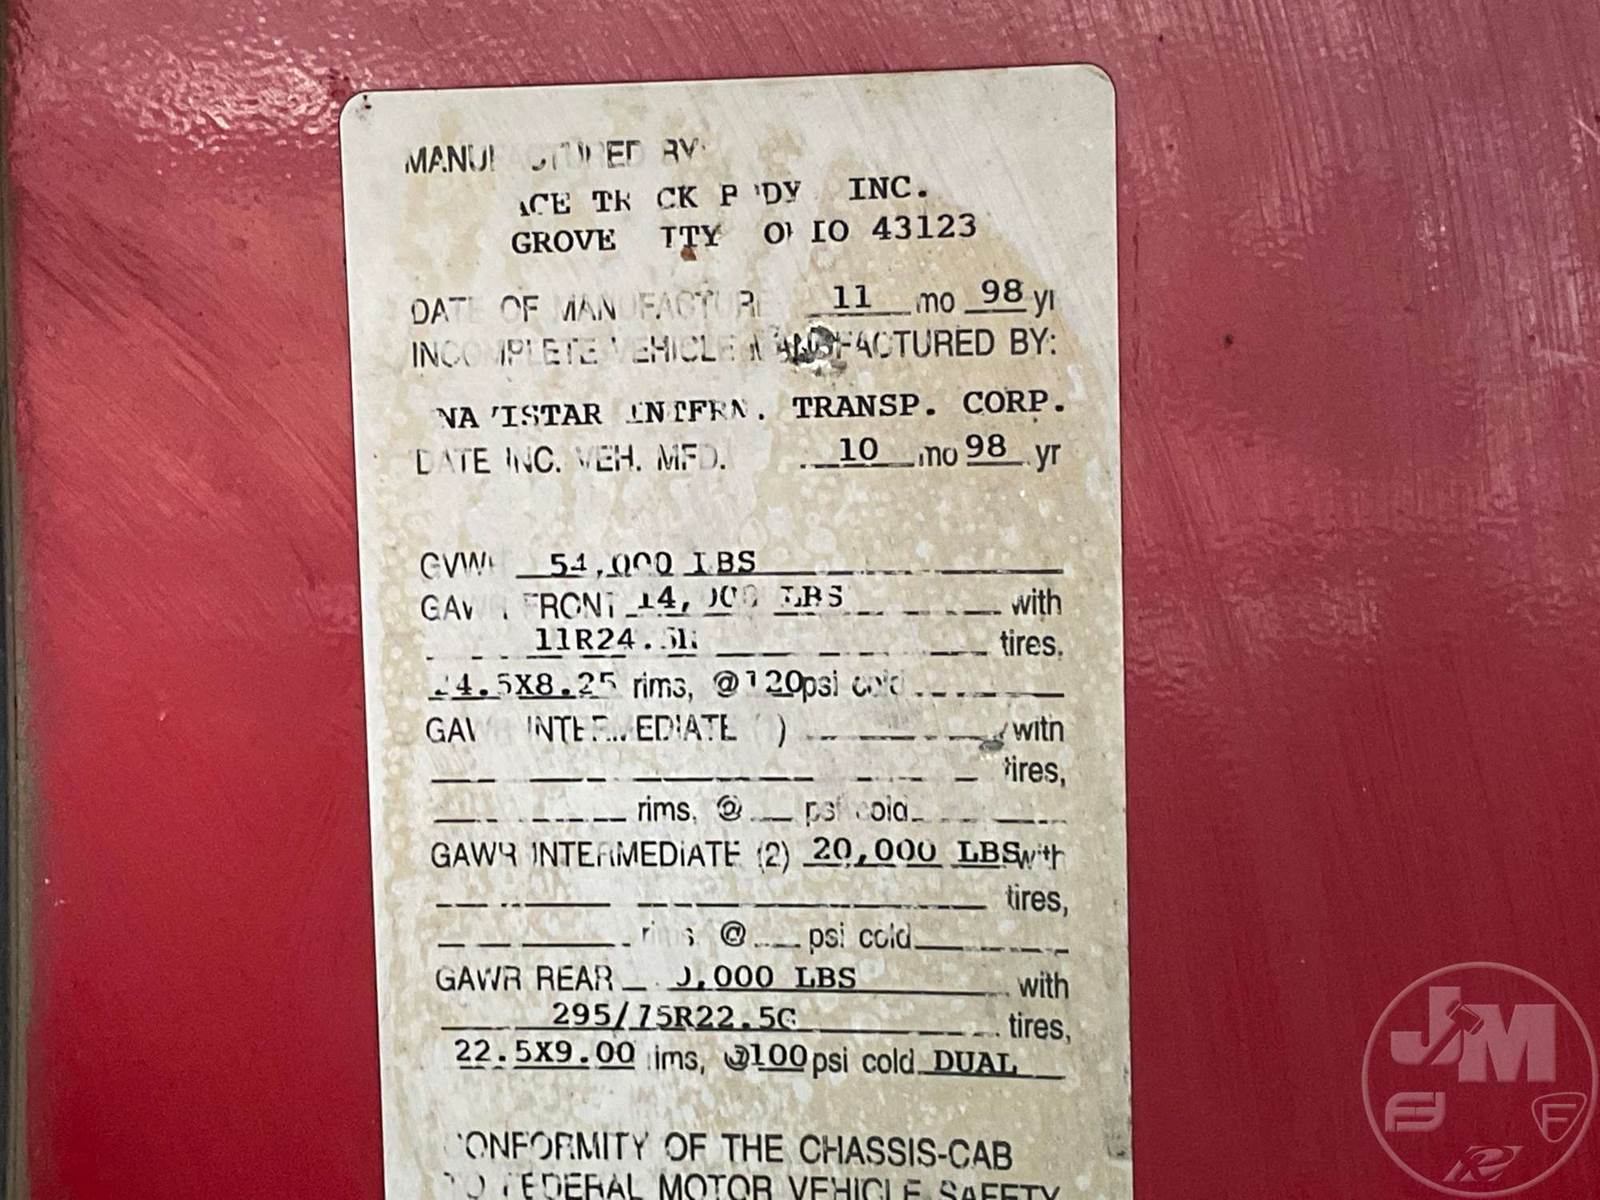 MANUFACTURED BY:
ACE TRUCK BODY, INC.
GROVE CITY OHIO 43123
DATE OF MANUFACTURE 11 mo 98 yr
INCOMPLETE VEHICLE MANUFACTURED BY:
NAVISTAR INTERN. TRANSP. CORP.
DATE INC. VEH. MFD. 10 mo 98 yr
GVWR 54,000 LBS
GAWR FRONT 14,000 LBS with
11R24.5 tires,
24.5X8.25 rims, @ 120 psi cold
GAWR INTERMEDIATE (1) with
tires,
rims, @ psi cold
GAWR INTERMEDIATE (2) 20,000 LBS with
tires,
rims @ psi cold
GAWR REAR ,000 LBS with
295/75R22.5G tires,
22.5X9.00 rims, @100 psi cold DUAL
CONFORMITY OF THE CHASSIS-CAB
TO FEDERAL MOTOR VEHICLE SAFETY
JM